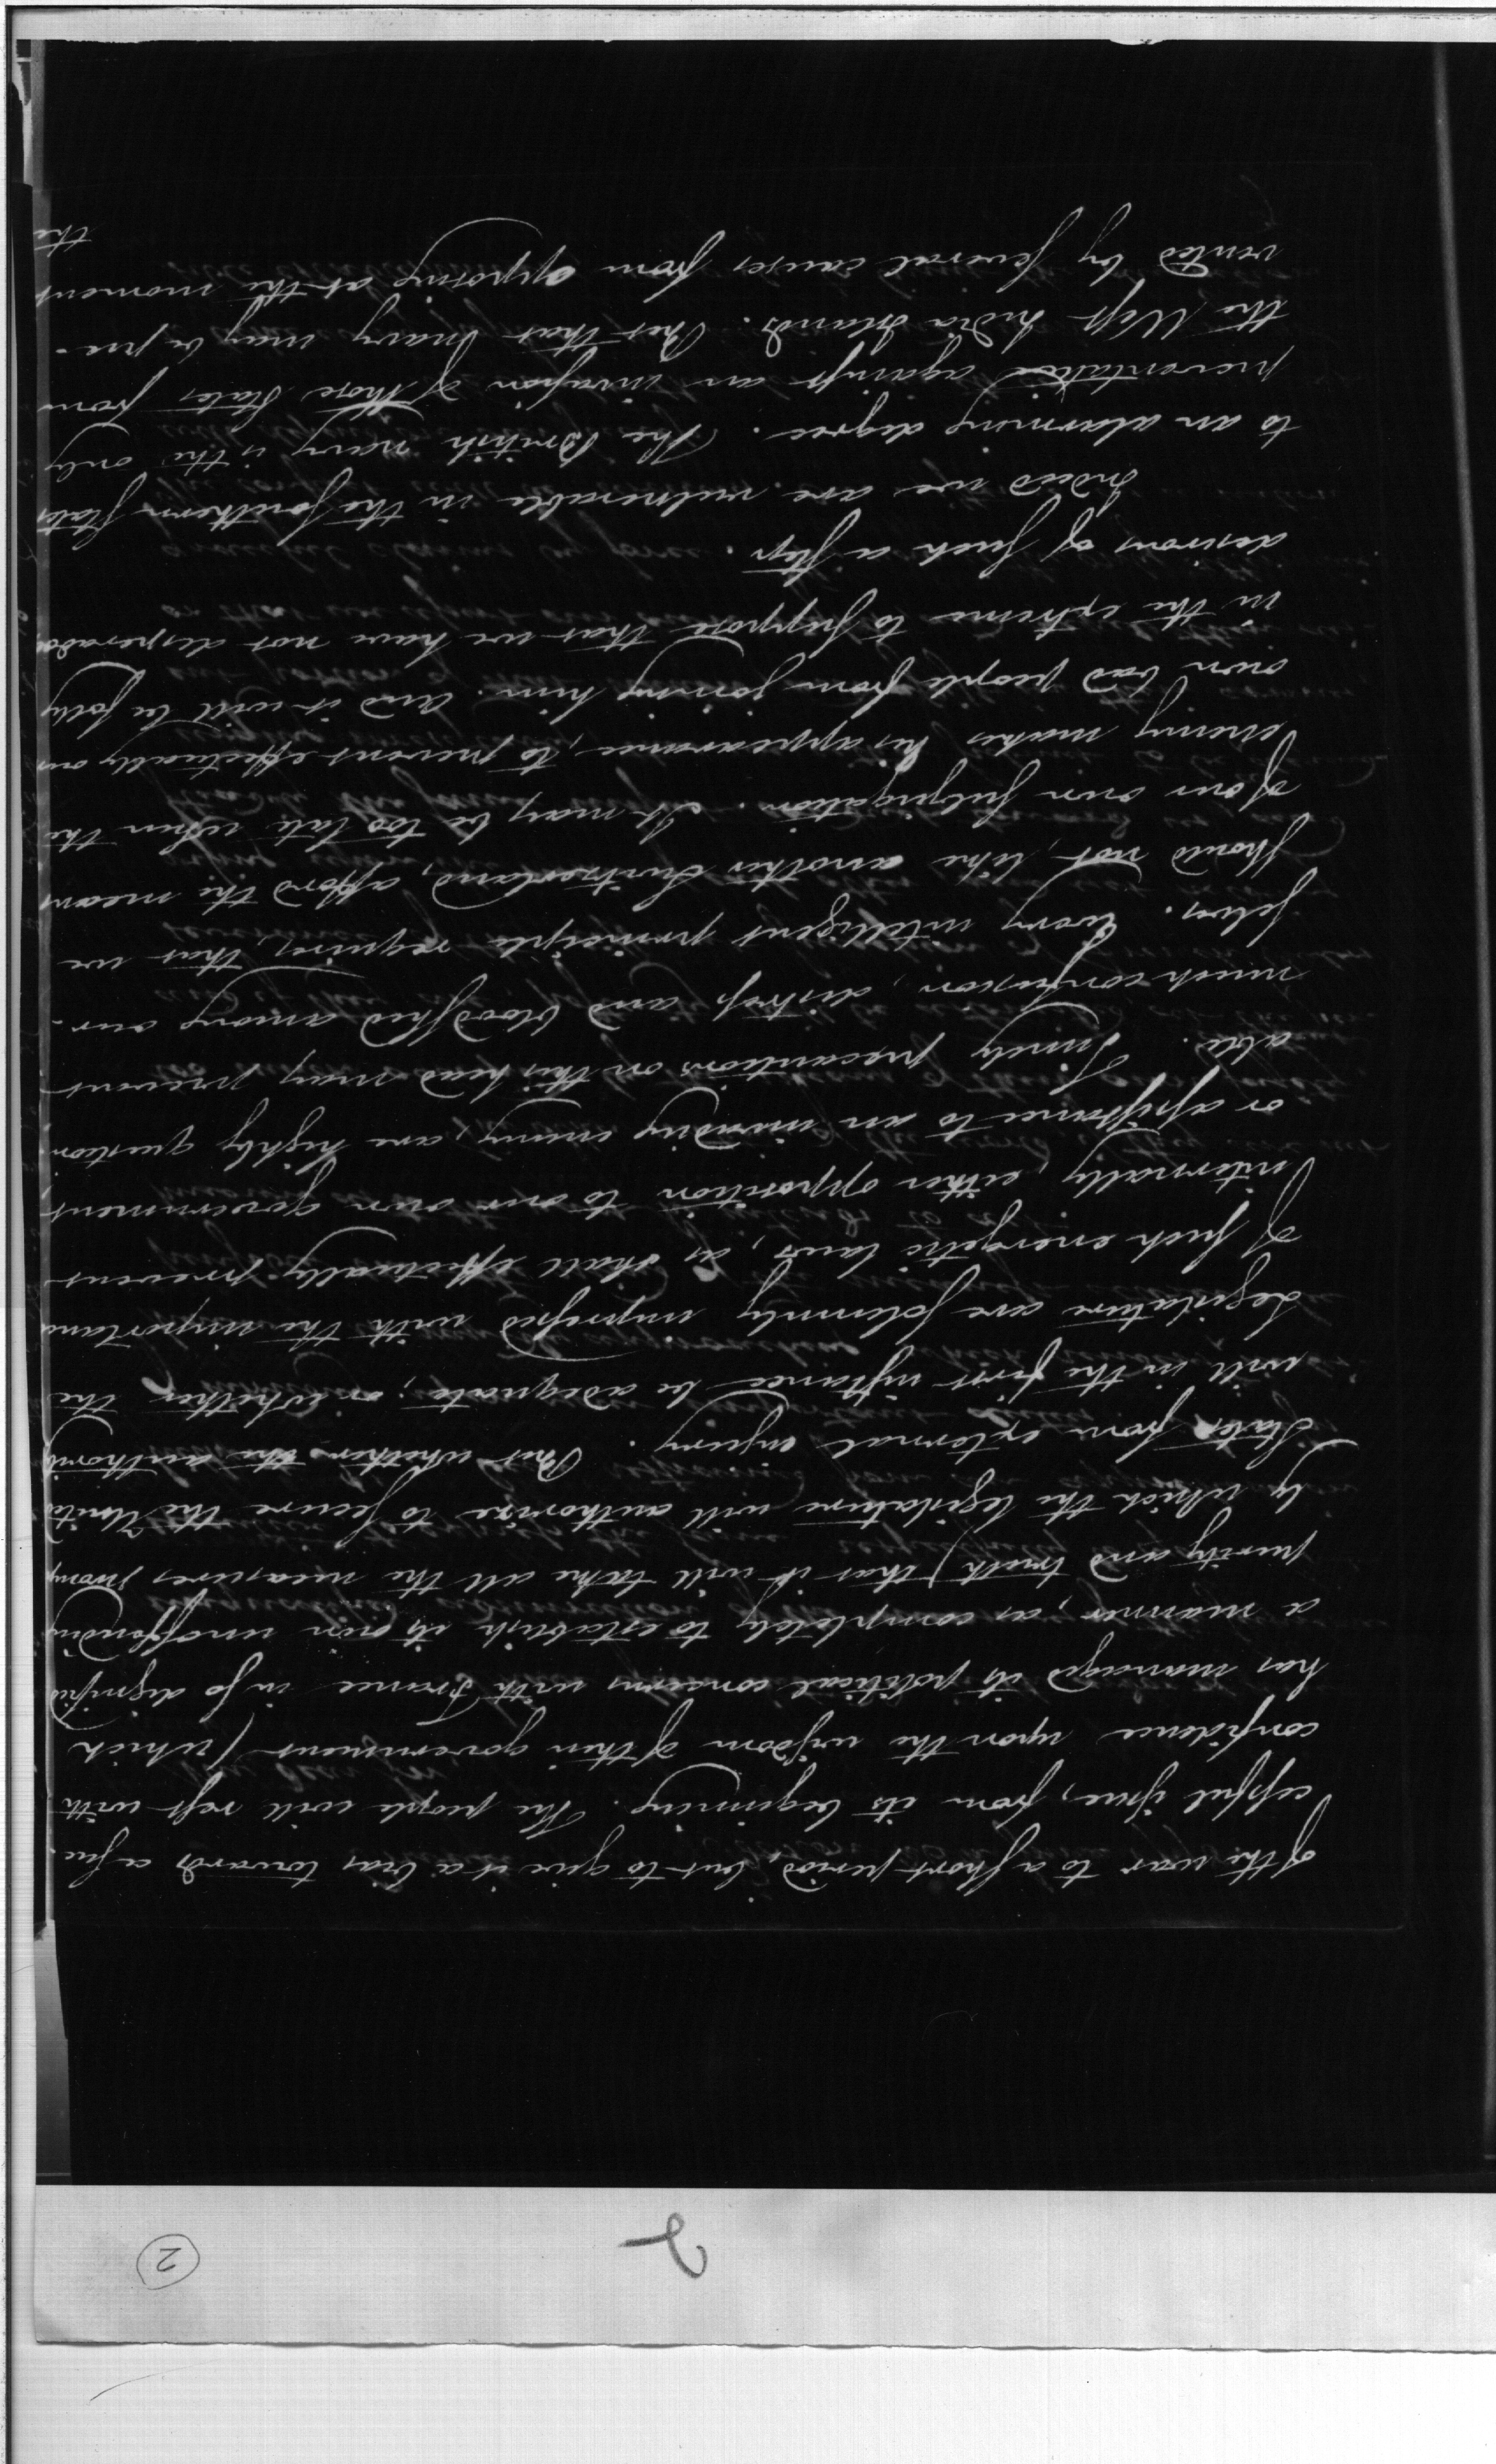 2
2
of the war to a short period, but to give it a bias towards a suc-
cessful issue, from its beginning. The people will rest with
confidence upon the wisdom of their government (which
has managed its political concerns with France in so dignified
a manner, as completely to establish its own unoffending
purity and truth) that it will take all the measures,
by which the legislature will authorize to secure the United
States from external injury. But whether the authority
will in the first instance be adequate; or whether the
Legislature are solemnly impressed with the importance
of such energetic laws, as shall effectually prevent
internally, either opposition to our own government,
or assistance to an invading enemy, are highly question-
able. Timely precautions on this head may prevent
much confusion, distress and bloodshed among our-
selves. Every intelligent principle requires, that we
should not, like another Switzerland, afford the means
of our own subjugation. It may be too late when the
enemy makes his appearance, to prevent effectually our
own bad people from joining him. And it will be folly
in the extreme to suppose that we have not desperadoes
desirous of such a step.
Indeed we are vulnerable in the southern States
to an alarming degree. The British navy is the only
preventative against an invasion of those States from
the West India Islands. But that navy may be pre-
vented by several causes from opposing at the moment
the